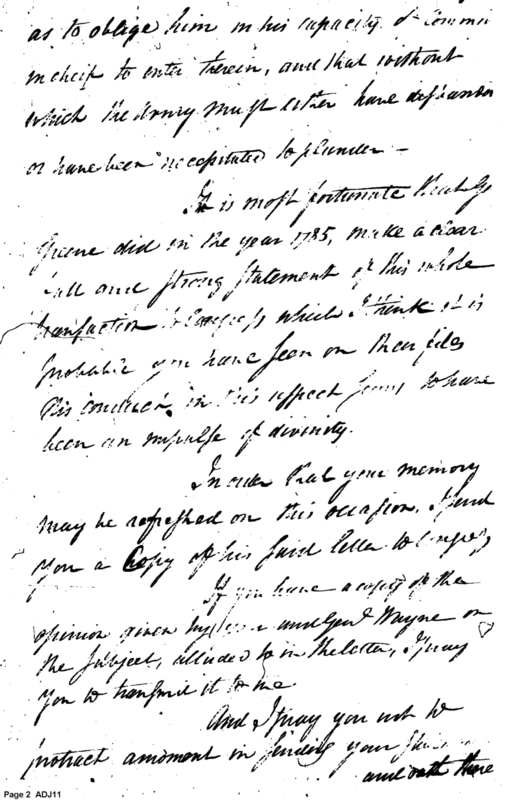 as to oblige him in his capacity of Comma
in cheif to enter therein, and that without
which the Army must either have disbanded
or have been necessitated to plunder –
It is most fortunate that G
Greene did in the year 1785, make a clear
full and strong statement of this whole
transaction to Congress which I think it is
probable you have seen on their files
His conduct in this respect seems to have
been an impulse of divinity.
In order that your memory
may be refreshed on this occasion, I send
you a Copy of his said letter to Congress
If you have a copy of the
opinion given by you and Genl Wayne on
the subject, alluded to in the letter, I pray
you to transmit it to me
And I pray you not to
protract a moment in sending your
and oath there
Page 2 ADJ11